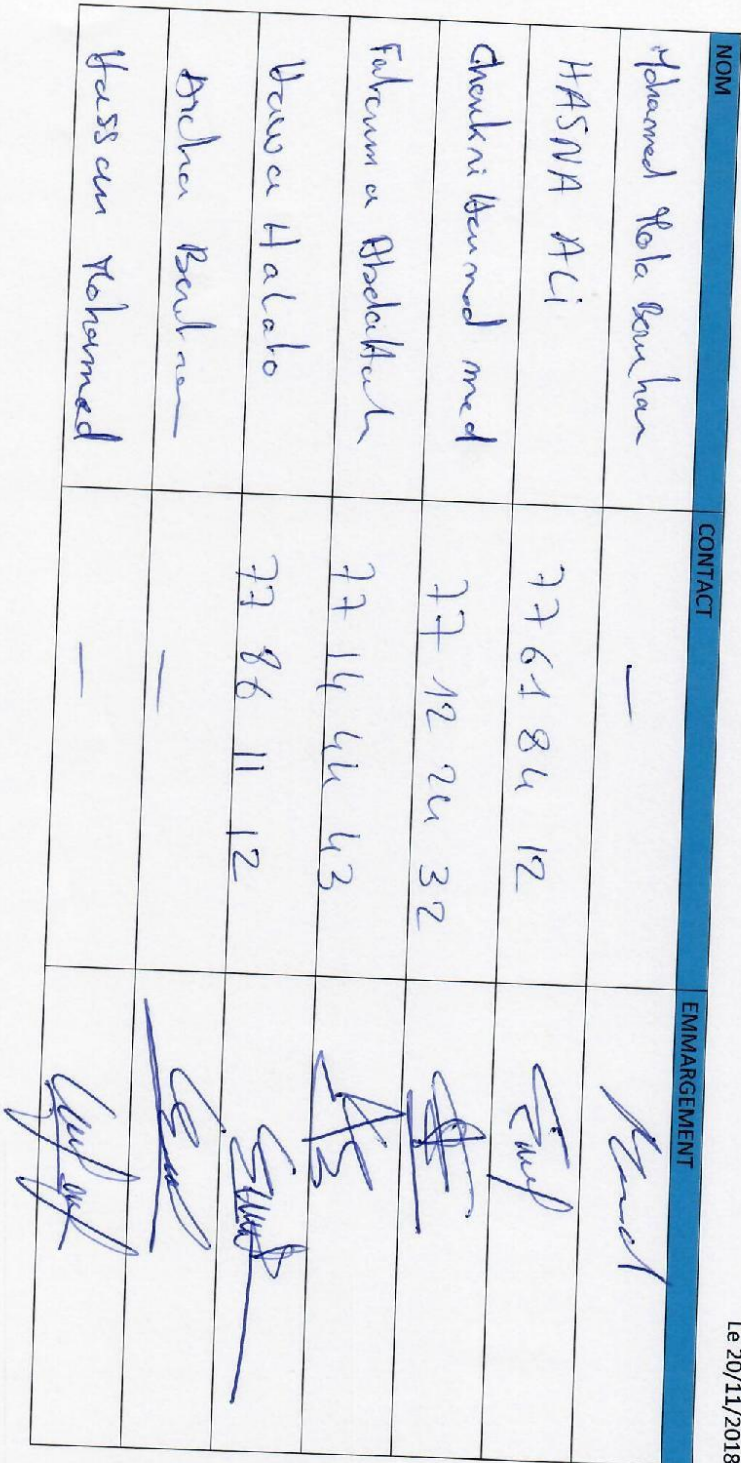 Le 20/11/2018
NOM CONTACT EMMARGEMENT
Mohamed Bourhan —
HASNA ALi 77 61 84 12
Choukri med 77 12 24 32
Fatouma Abdallah 77 14 44 43
Hawa Halato 77 86 11 12
Aicha —
Hassan Mohammed —